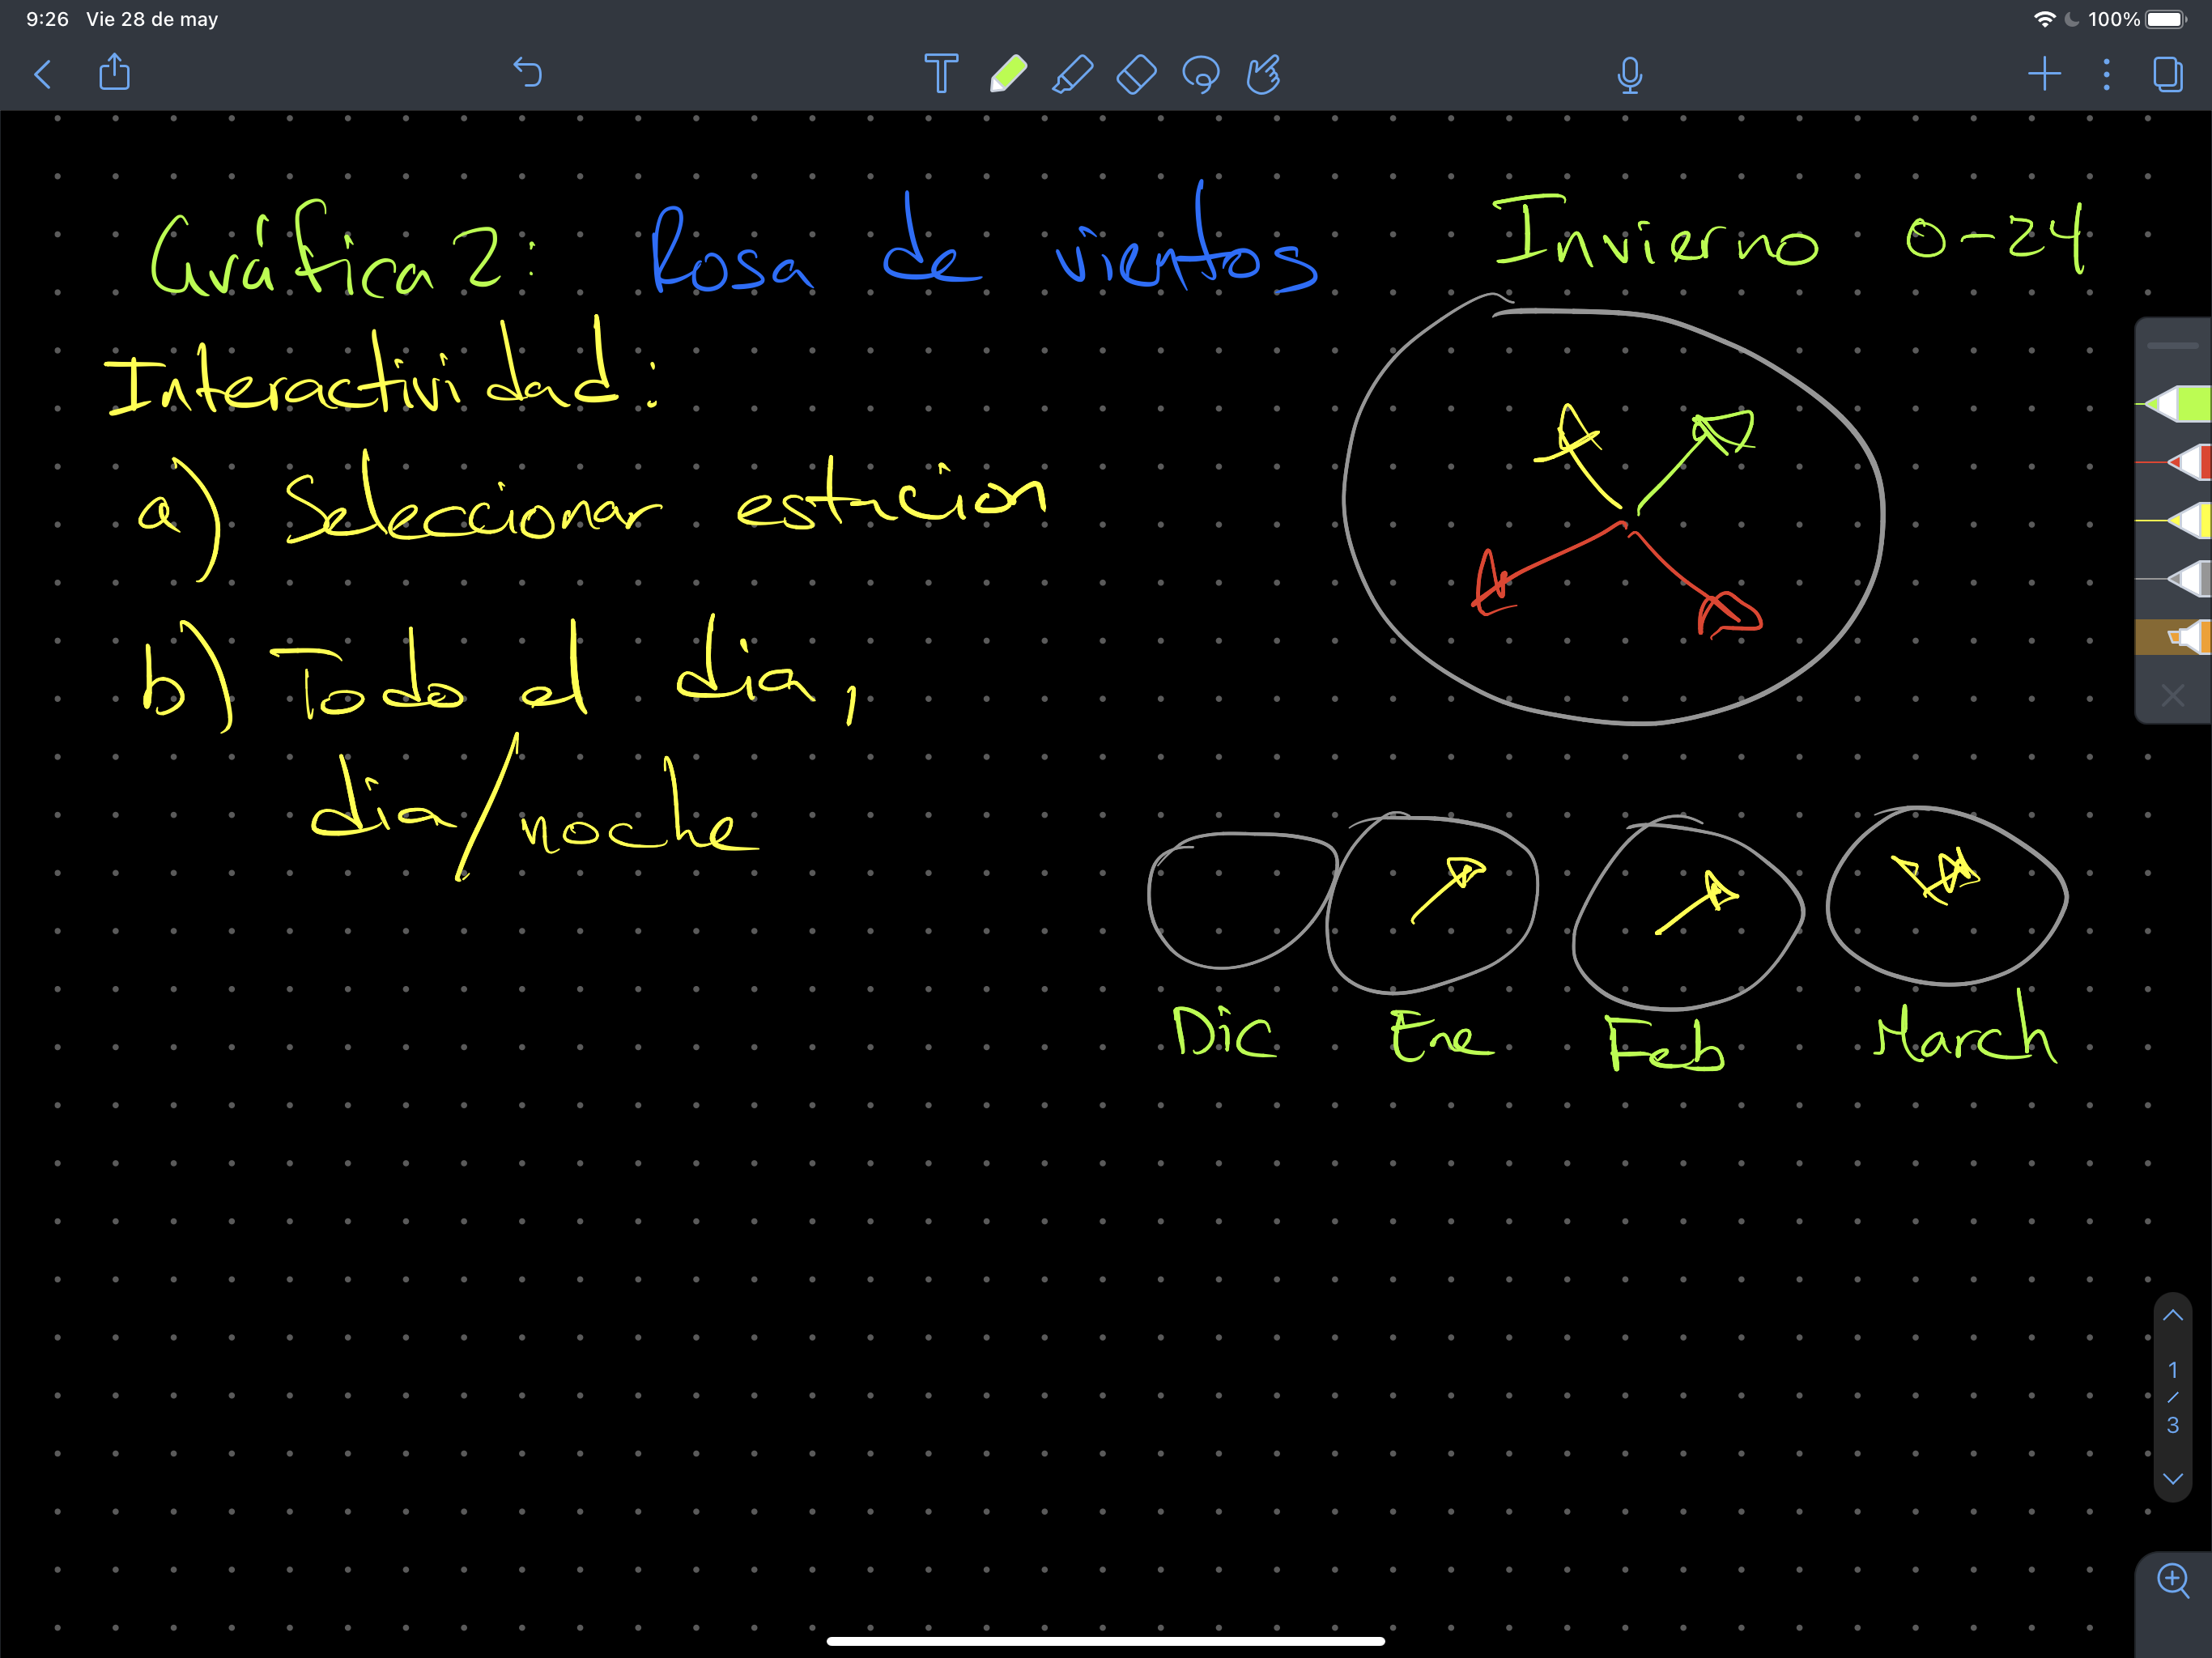 9:26 Vie 28 de may
100%
Gráfica 2: Rosa de vientos
Invierno 0-24
Interactividad:
a) Seleccionar estacion
b) Todo el dia,
dia/noche
Dic Ene Feb March
1
/
3